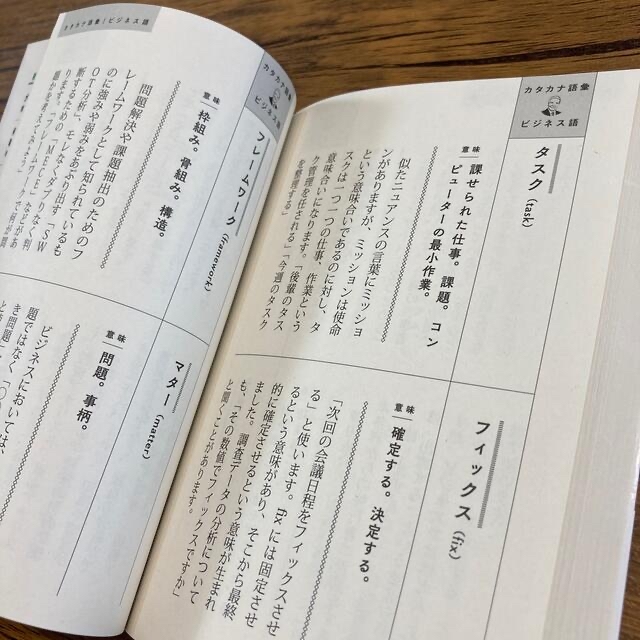 カタカナ語彙
ビジネス語
タスク (task)
意味 課せられた仕事。課題。コン
ピューターの最小作業。
似たニュアンスの言葉にミッショ
ンがありますが、ミッションは使命
という意味合いであるのに対し、タ
スクは一つ一つの仕事、作業という
意味合いになります。「後輩のタス
ク管理を任される」「今週のタスク
を整理する」
フィックス (fix)
意味 確定する。決定する。
「次回の会議日程をフィックスさせ
る」と使います。fix には固定させ
るという意味があり、そこから最終
的に確定させるという意味が生まれ
ました。調査データの分析について
も、「その数値でフィックスですか」
と聞くことがあります。
カタカナ語彙
ビジネス語
フレームワーク (framework)
意味 枠組み。骨組み。構造。
問題解決や課題抽出のためのフ
レームワークとして知られているも
のに強みや弱みをあぶり出す「SW
OT分析」、モレなくダブりなく判
断するための「MECE」などがあ
ります。
マター (matter)
意味 問題。事柄。
ビジネスにおいては、
題ではなく「〇〇
き問題」
カタカナ語彙 ビジネス語